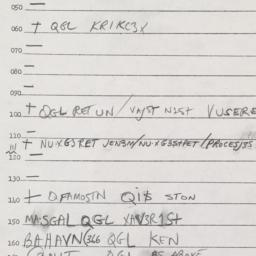 050 —
060 + QGL KRIKC3X
070 —
080 —
090 —
100 + QGL RET UN / VAJST NIST VUSERE
110 —
+ NU-XG3RET JEN3M/NU-XG3STPET/(PROCES/35
120
130 —
140 + DFAMOSTN QI$ STON
150 MASGAL QGL YAVSRIST
160 BAHAVN(366 QGL KEN
QGL AS ABOVE